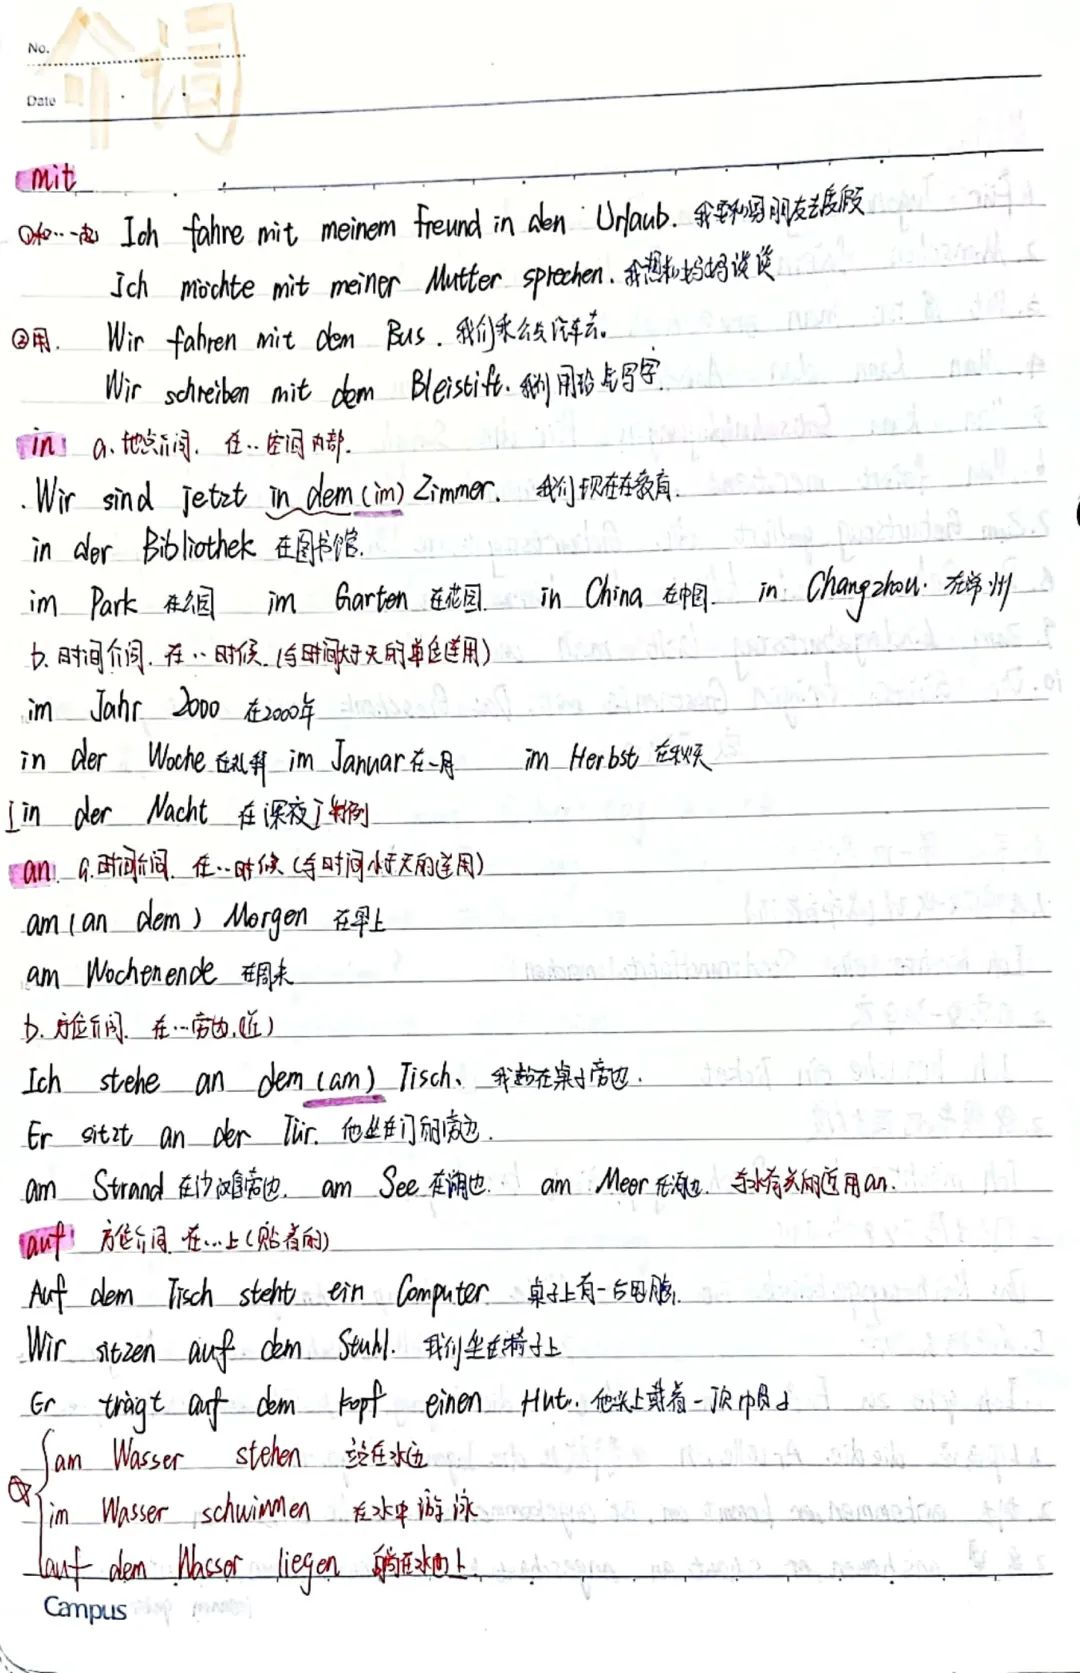 No.
介词
Date
mit
①和…一起 Ich fahre mit meinem Freund in den Urlaub. 我要和男朋友去度假
Ich möchte mit meiner Mutter sprechen. 我想和妈妈谈谈
②用. Wir fahren mit dem Bus. 我们乘公交汽车去。
Wir schreiben mit dem Bleistift. 我们用铅笔写字
in a. 地点介词. 在..空间内部.
. Wir sind jetzt in dem (im) Zimmer. 我们现在在教育.
in der Bibliothek 在图书馆.
im Park 在公园 im Garten 在花园. in China 在中国. in Changzhou. 在常州
b. 时间介词. 在..时候. (与时间大于天的单位连用)
im Jahr 2000 在2000年
in der Woche 在礼拜 im Januar 在一月 im Herbst 在秋天
[in der Nacht 在深夜] 特例
an a. 时间介词. 在..时候 (与时间小于天的连用)
am (an dem) Morgen 在早上
am Wochenende 在周末
b. 方位介词. 在…旁边. (近)
Ich stehe an dem (am) Tisch. 我站在桌子旁边.
Er sitzt an der Tür. 他坐在门的旁边.
am Strand 在沙滩旁边. am See 在湖边. am Meer 在海边. 与水有关的近用an.
auf 方位介词 在…上 (贴着的)
Auf dem Tisch steht ein Computer 桌子上有一台电脑.
Wir sitzen auf dem Stuhl. 我们坐在椅子上
Er trägt auf dem Kopf einen Hut. 他头上戴着一顶帽子
am Wasser stehen 站在水边
im Wasser schwimmen 在水中游泳
auf dem Wasser liegen 躺在水面上.
Campus